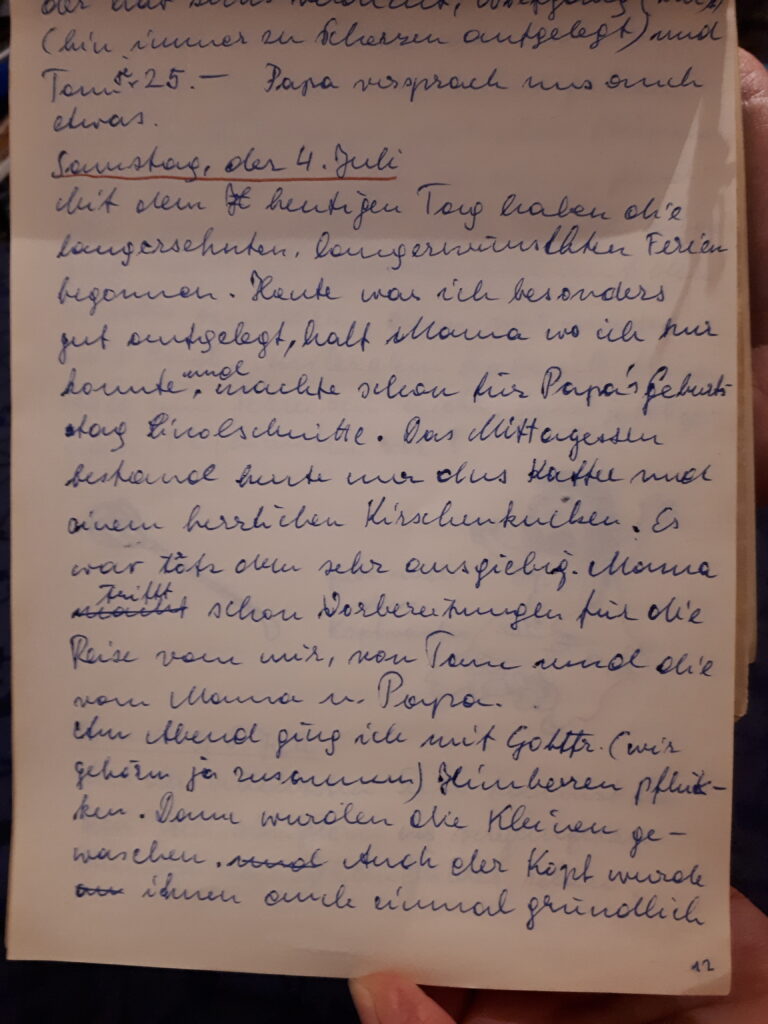 (bin immer zu Scherzen aufgelegt) und
Tom 25.— Papa versprach uns auch
etwas.
Samstag, der 4. Juli
Mit dem heutigen Tag haben die
langersehnten, langerwünschten Ferien
begonnen. Heute war ich besonders
gut aufgelegt, half Mama wo ich nur
konnte, und machte schon für Papa's Geburts
tag Linolschnitte. Das Mittagessen
bestand heute nur aus Kaffee und
einem herrlichen Kirschenkuchen. Es
war sehr ausgiebig. Mama
trifft schon Vorbereitungen für die
Reise von mir, von Tom und die
von Mama u. Papa.
Am Abend ging ich mit Gottfr. (wir
gehören ja zusammen) Himberren pflük-
ken. Dann wurden die Kleinen ge-
waschen. Auch der Kopf wurde
ihnen auch einmal gründlich
12